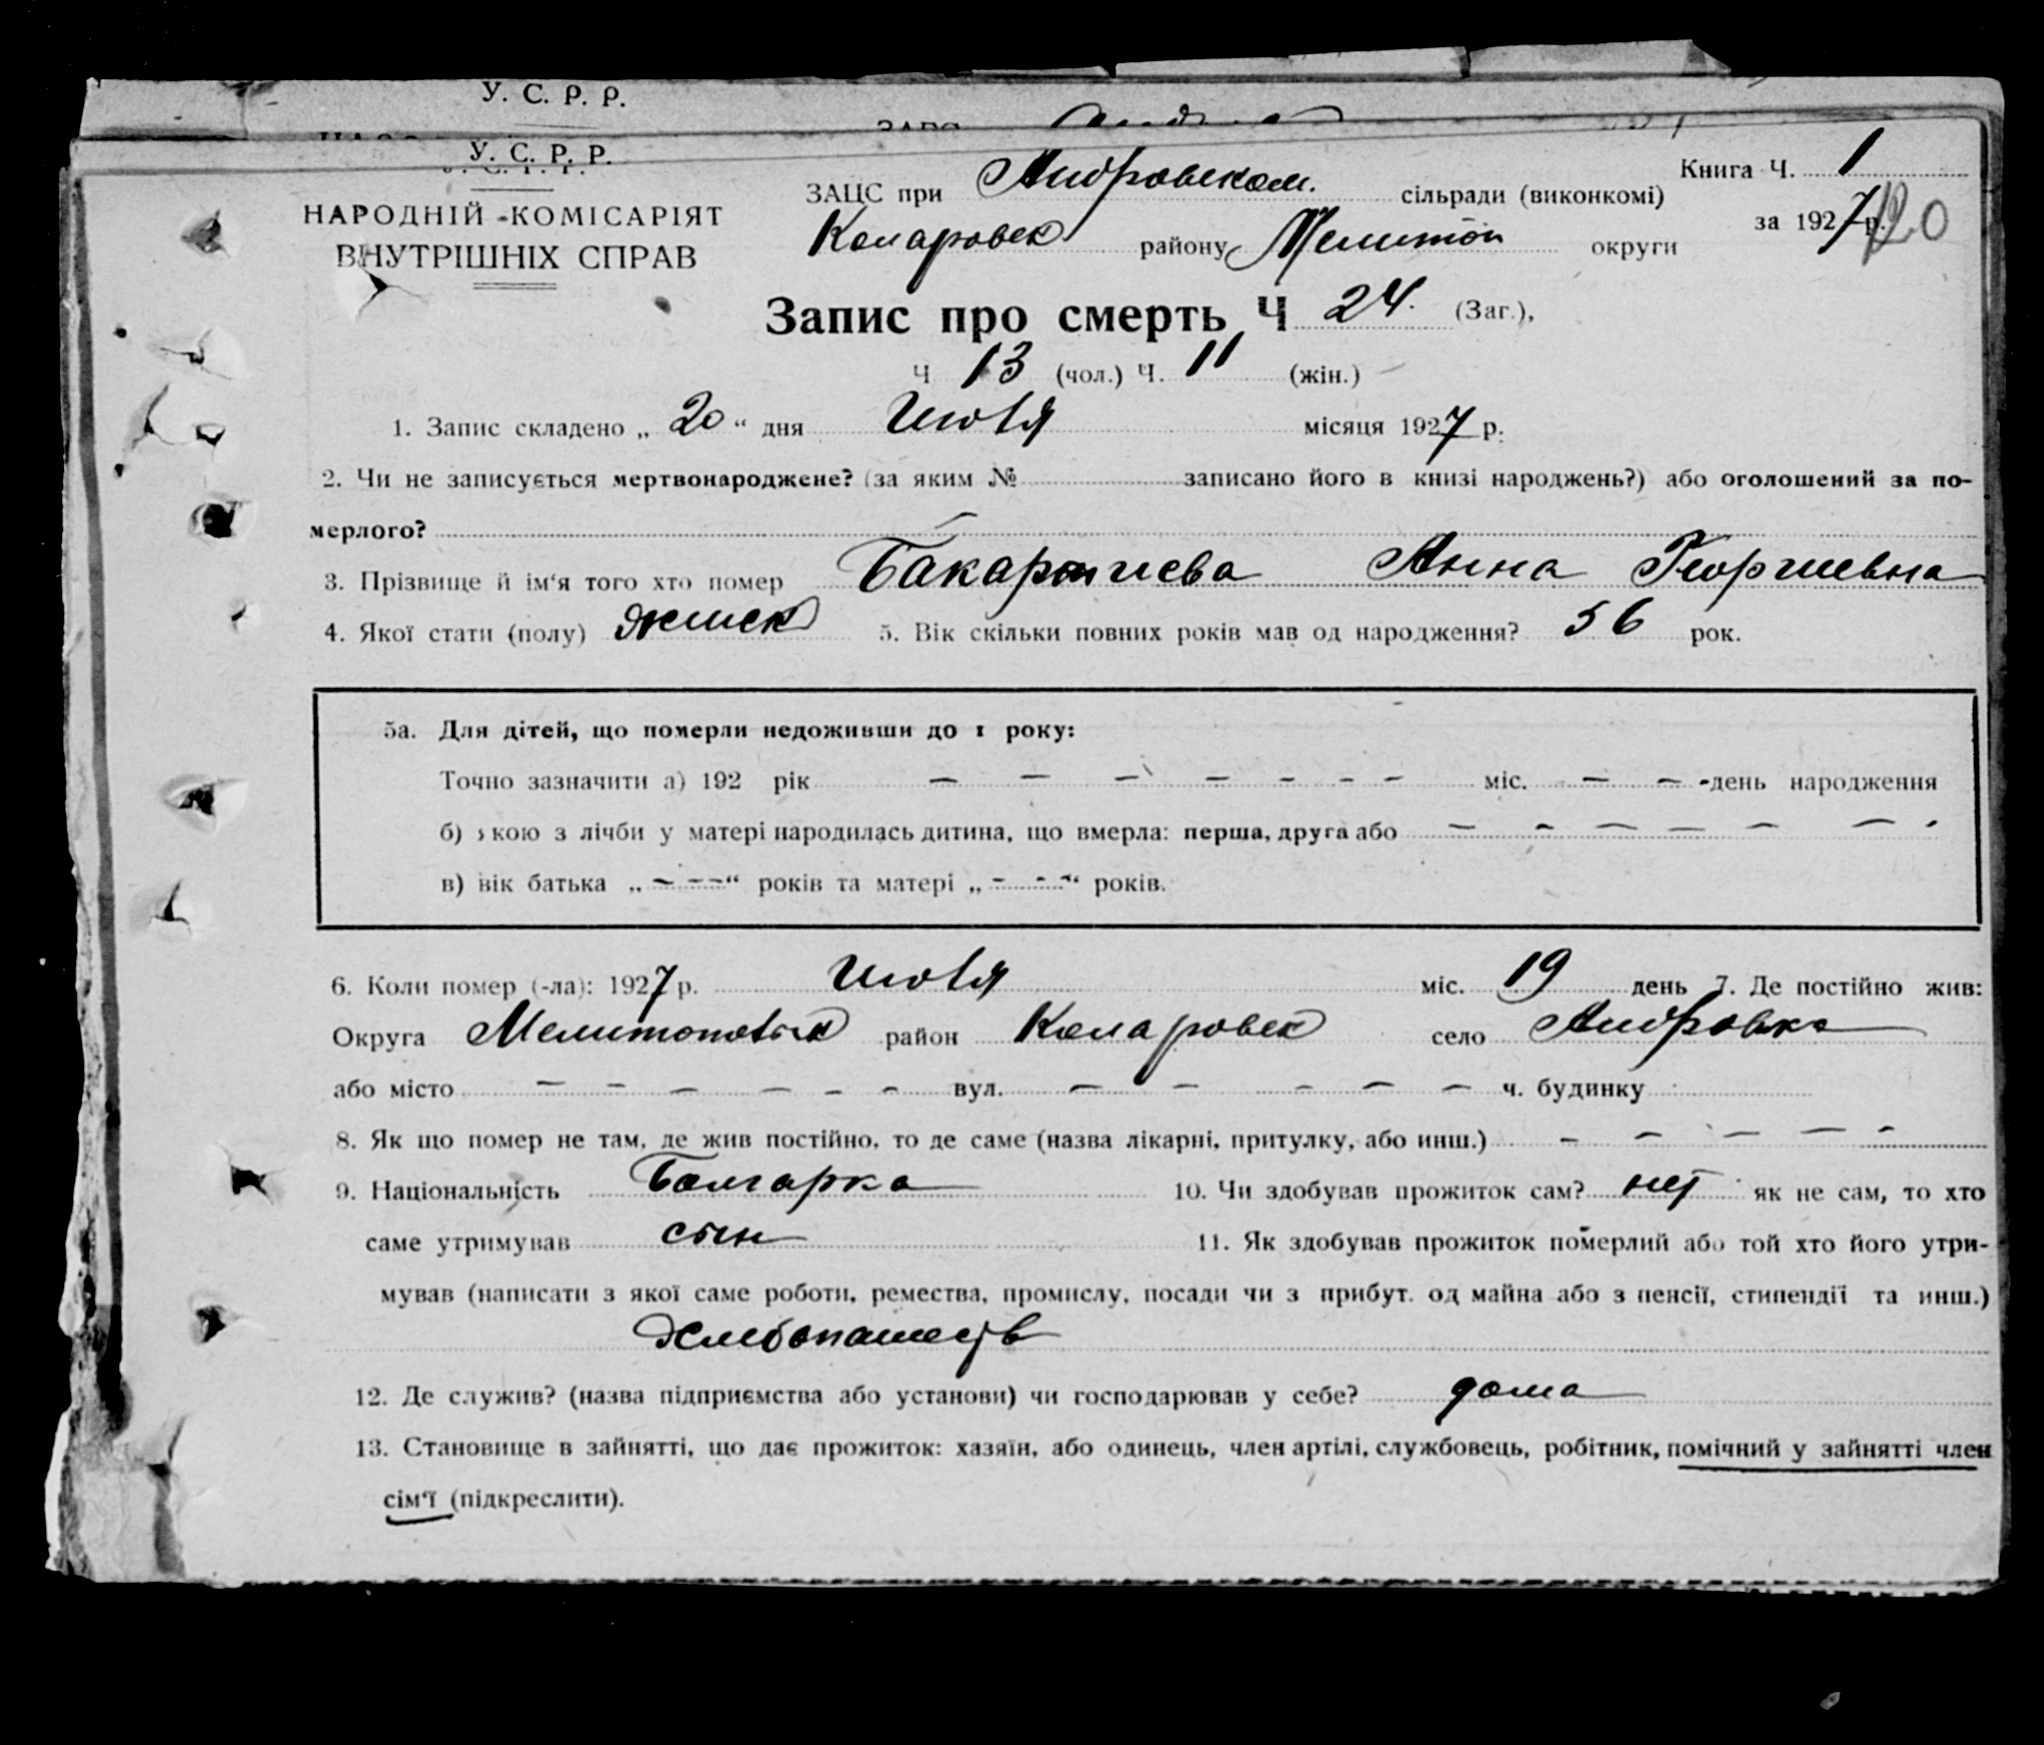 У. С. Р. Р.
У. С. Р. Р.
НАРОДНІЙ КОМІСАРІЯТ
ВНУТРІШНІХ СПРАВ
ЗАЦС при Андровском. сільради (виконкомі)
Книга Ч. 1
Коларовск району Мелитоп округи
за 1927 р. 120
Запис про смерть Ч 24. (Заг.),
Ч 13 (чол.) Ч. 11 (жін.)
1. Запис складено „ 20 “ дня Июля місяця 1927 р.
2. Чи не записується мертвонароджене? (за яким № записано його в книзі народжень?) або оголошений за по-
мерлого?
3. Прізвище й ім‘я того хто помер Бакартиева Анна Георгиевна
4. Якої стати (полу) женск 5. Вік скільки повних років мав од народження? 56 рок.
5а. Для дітей, що померли недоживши до 1 року:
Точно зазначити а) 192 рік — — — — — — — міс. — — - день народження
б) якою з лічби у матері народилась дитина, що вмерла: перша, друга або — — — — — — -
в) вік батька „ — — — “ років та матері „ - - - “ років.
6. Коли помер (-ла): 1927 р. Июля міс. 19 день 7. Де постійно жив:
Округа Мелитопольск район Коларовск село Андровка
або місто — — — — — — вул. — — — — — ч. будинку
8. Як що помер не там, де жив постійно, то де саме (назва лікарні, притулку, або инш.) — — — — -
9. Національність Болгарка 10. Чи здобував прожиток сам? нет як не сам, то хто
саме утримував сын 11. Як здобував прожиток померлий або той хто його утри-
мував (написати з якої саме роботи, ремества, промислу, посади чи з прибут. од майна або з пенсії, стипендії та инш.)
Хлебопашеств
12. Де служив? (назва підприємства або установи) чи господарював у себе? дома
13. Становище в зайнятті, що дає прожиток: хазяїн, або одинець, член артілі, службовець, робітник, помічний у зайнятті член
сім‘ї (підкреслити).